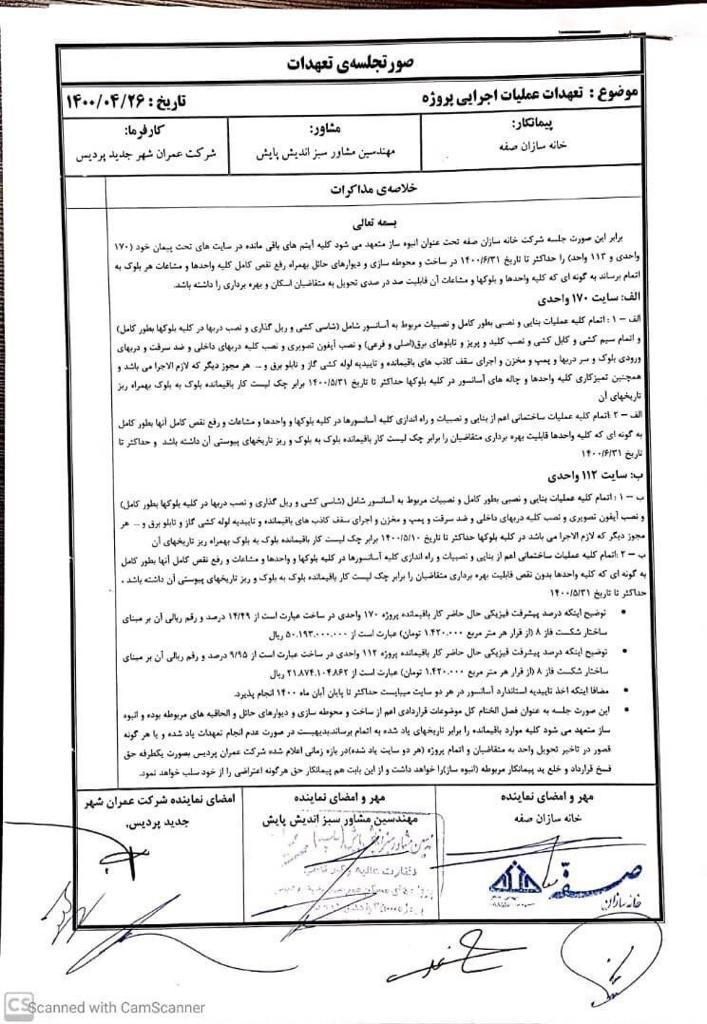 صورتجلسه‌ی تعهدات
موضوع : تعهدات عملیات اجرایی پروژه
تاریخ : ۱۴۰۰/۰۴/۲۶
پیمانکار:
خانه سازان صفه
مشاور:
مهندسین مشاور سبز اندیش پایش
کارفرما:
شرکت عمران شهر جدید پردیس
خلاصه‌ی مذاکرات
بسمه تعالی
برابر این صورت جلسه شرکت خانه سازان صفه تحت عنوان انبوه ساز متعهد می شود کلیه آیتم های باقی مانده در سایت های تحت پیمان خود (۱۷۰
واحدی و ۱۱۳ واحد) را حداکثر تا تاریخ ۱۴۰۰/۶/۳۱ در ساخت و محوطه سازی و دیوارهای حائل بهمراه رفع نقص کامل کلیه واحدها و مشاعات هر بلوک به
اتمام برساند به گونه ای که کلیه واحدها و بلوکها و مشاعات آن قابلیت صد در صدی تحویل به متقاضیان اسکان و بهره برداری را داشته باشد.
الف: سایت ۱۷۰ واحدی
الف – ۱ : اتمام کلیه عملیات بنایی و نصبی بطور کامل و نصبیات مربوط به آسانسور شامل (شاسی کشی و ریل گذاری و نصب دربها در کلیه بلوکها بطور کامل)
و اتمام سیم کشی و کابل کشی و نصب کلید و پریز و تابلوهای برق(اصلی و فرعی) و نصب آیفون تصویری و نصب کلیه دربهای داخلی و ضد سرقت و دربهای
ورودی بلوک و سر دربها و پمپ و مخزن و اجرای سقف کاذب های باقیمانده و تاییدیه لوله کشی گاز و تابلو برق و ... هر مجوز دیگر که لازم الاجرا می باشد و
همچنین تمیزکاری کلیه واحدها و چاله های آسانسور در کلیه بلوکها حداکثر تا تاریخ ۱۴۰۰/۵/۳۱ برابر چک لیست کار باقیمانده بلوک به بلوک بهمراه ریز
تاریخهای آن
الف – ۲ : اتمام کلیه عملیات ساختمانی اعم از بنایی و نصبیات و راه اندازی کلیه آسانسورها در کلیه بلوکها و واحدها و مشاعات و رفع نقص کامل آنها بطور کامل
به گونه ای که کلیه واحدها قابلیت بهره برداری متقاضیان را برابر چک لیست کار باقیمانده بلوک به بلوک و ریز تاریخهای پیوستی آن داشته باشد و حداکثر تا
تاریخ ۱۴۰۰/۶/۳۱
ب: سایت ۱۱۲ واحدی
ب – ۱ : اتمام کلیه عملیات بنایی و نصبی بطور کامل و نصبیات مربوط به آسانسور شامل (شاسی کشی و ریل گذاری و نصب دربها در کلیه بلوکها بطور کامل)
و نصب آیفون تصویری و نصب کلیه دربهای داخلی و ضد سرقت و پمپ و مخزن و اجرای سقف کاذب های باقیمانده و تاییدیه لوله کشی گاز و تابلو برق و ... هر
مجوز دیگر که لازم الاجرا می باشد در کلیه بلوکها حداکثر تا تاریخ ۱۴۰۰/۵/۱۰ برابر چک لیست کار باقیمانده بلوک به بلوک بهمراه ریز تاریخهای آن
ب – ۲ : اتمام کلیه عملیات ساختمانی اعم از بنایی و نصبیات و راه اندازی کلیه آسانسورها در کلیه بلوکها و واحدها و مشاعات و رفع نقص کامل آنها بطور کامل
به گونه ای که کلیه واحدها بدون نقص قابلیت بهره برداری متقاضیان را برابر چک لیست کار باقیمانده بلوک به بلوک و ریز تاریخهای پیوستی آن داشته باشد ،
حداکثر تا تاریخ ۱۴۰۰/۵/۳۱
• توضیح اینکه درصد پیشرفت فیزیکی حال حاضر کار باقیمانده پروژه ۱۷۰ واحدی در ساخت عبارت است از ۱۴/۴۹ درصد و رقم ریالی آن بر مبنای
ساختار شکست فاز ۸ (از قرار هر متر مربع ۱.۴۲۰.۰۰۰ تومان) عبارت است از ۵۰.۱۹۳.۰۰۰.۰۰۰ ریال
• توضیح اینکه درصد پیشرفت فیزیکی حال حاضر کار باقیمانده پروژه ۱۱۲ واحدی در ساخت عبارت است از ۹/۹۵ درصد و رقم ریالی آن بر مبنای
ساختار شکست فاز ۸ (از قرار هر متر مربع ۱.۴۲۰.۰۰۰ تومان) عبارت است از ۲۱.۸۷۴.۱۰۴.۸۶۲ ریال
• مضافا اینکه اخذ تاییدیه استاندارد آسانسور در هر دو سایت میبایست حداکثر تا پایان آبان ماه ۱۴۰۰ انجام پذیرد.
• این صورت جلسه به عنوان فصل الختام کل موضوعات قراردادی اعم از ساخت و محوطه سازی و دیوارهای حائل و الحاقیه های مربوطه بوده و انبوه
ساز متعهد می شود کلیه موارد باقیمانده را برابر تاریخهای یاد شده به اتمام برساندبدیهیست در صورت عدم انجام تعهدات یاد شده و یا هر گونه
قصور در تاخیر تحویل واحد به متقاضیان و اتمام پروژه (هر دو سایت یاد شده)در بازه زمانی اعلام شده شرکت عمران پردیس بصورت یکطرفه حق
فسخ قرارداد و خلع ید پیمانکار مربوطه (انبوه ساز)را خواهد داشت و از این بابت هم پیمانکار حق هرگونه اعتراضی را از خود سلب خواهد نمود.
مهر و امضای نماینده
خانه سازان صفه
مهر و امضای نماینده
مهندسین مشاور سبز اندیش پایش
امضای نماینده شرکت عمران شهر
جدید پردیس.
صفه
خانه سازان
CS Scanned with CamScanner